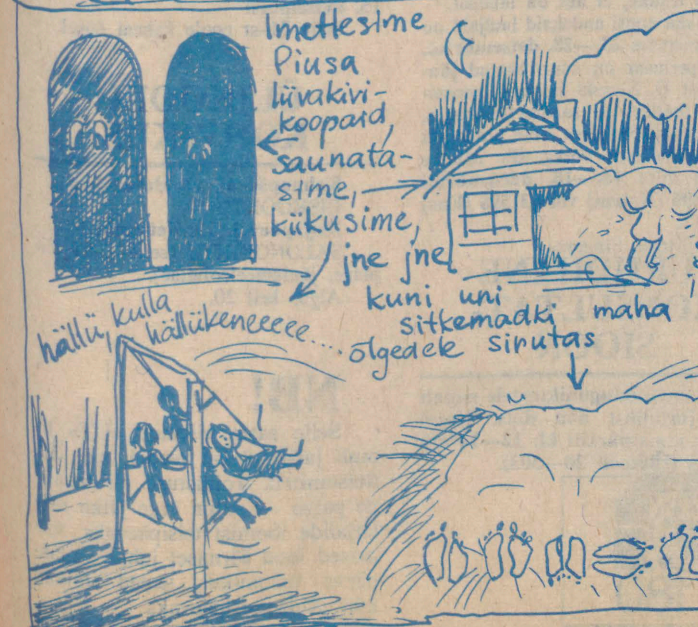 Imetlesime
Piusa
liivakivi-
koopaid,
saunata-
sime,
kiikusime,
jne jne
kuni uni
sitkemadki maha
õlgedele sirutas
hällü, kulla
hällükeneeeee....